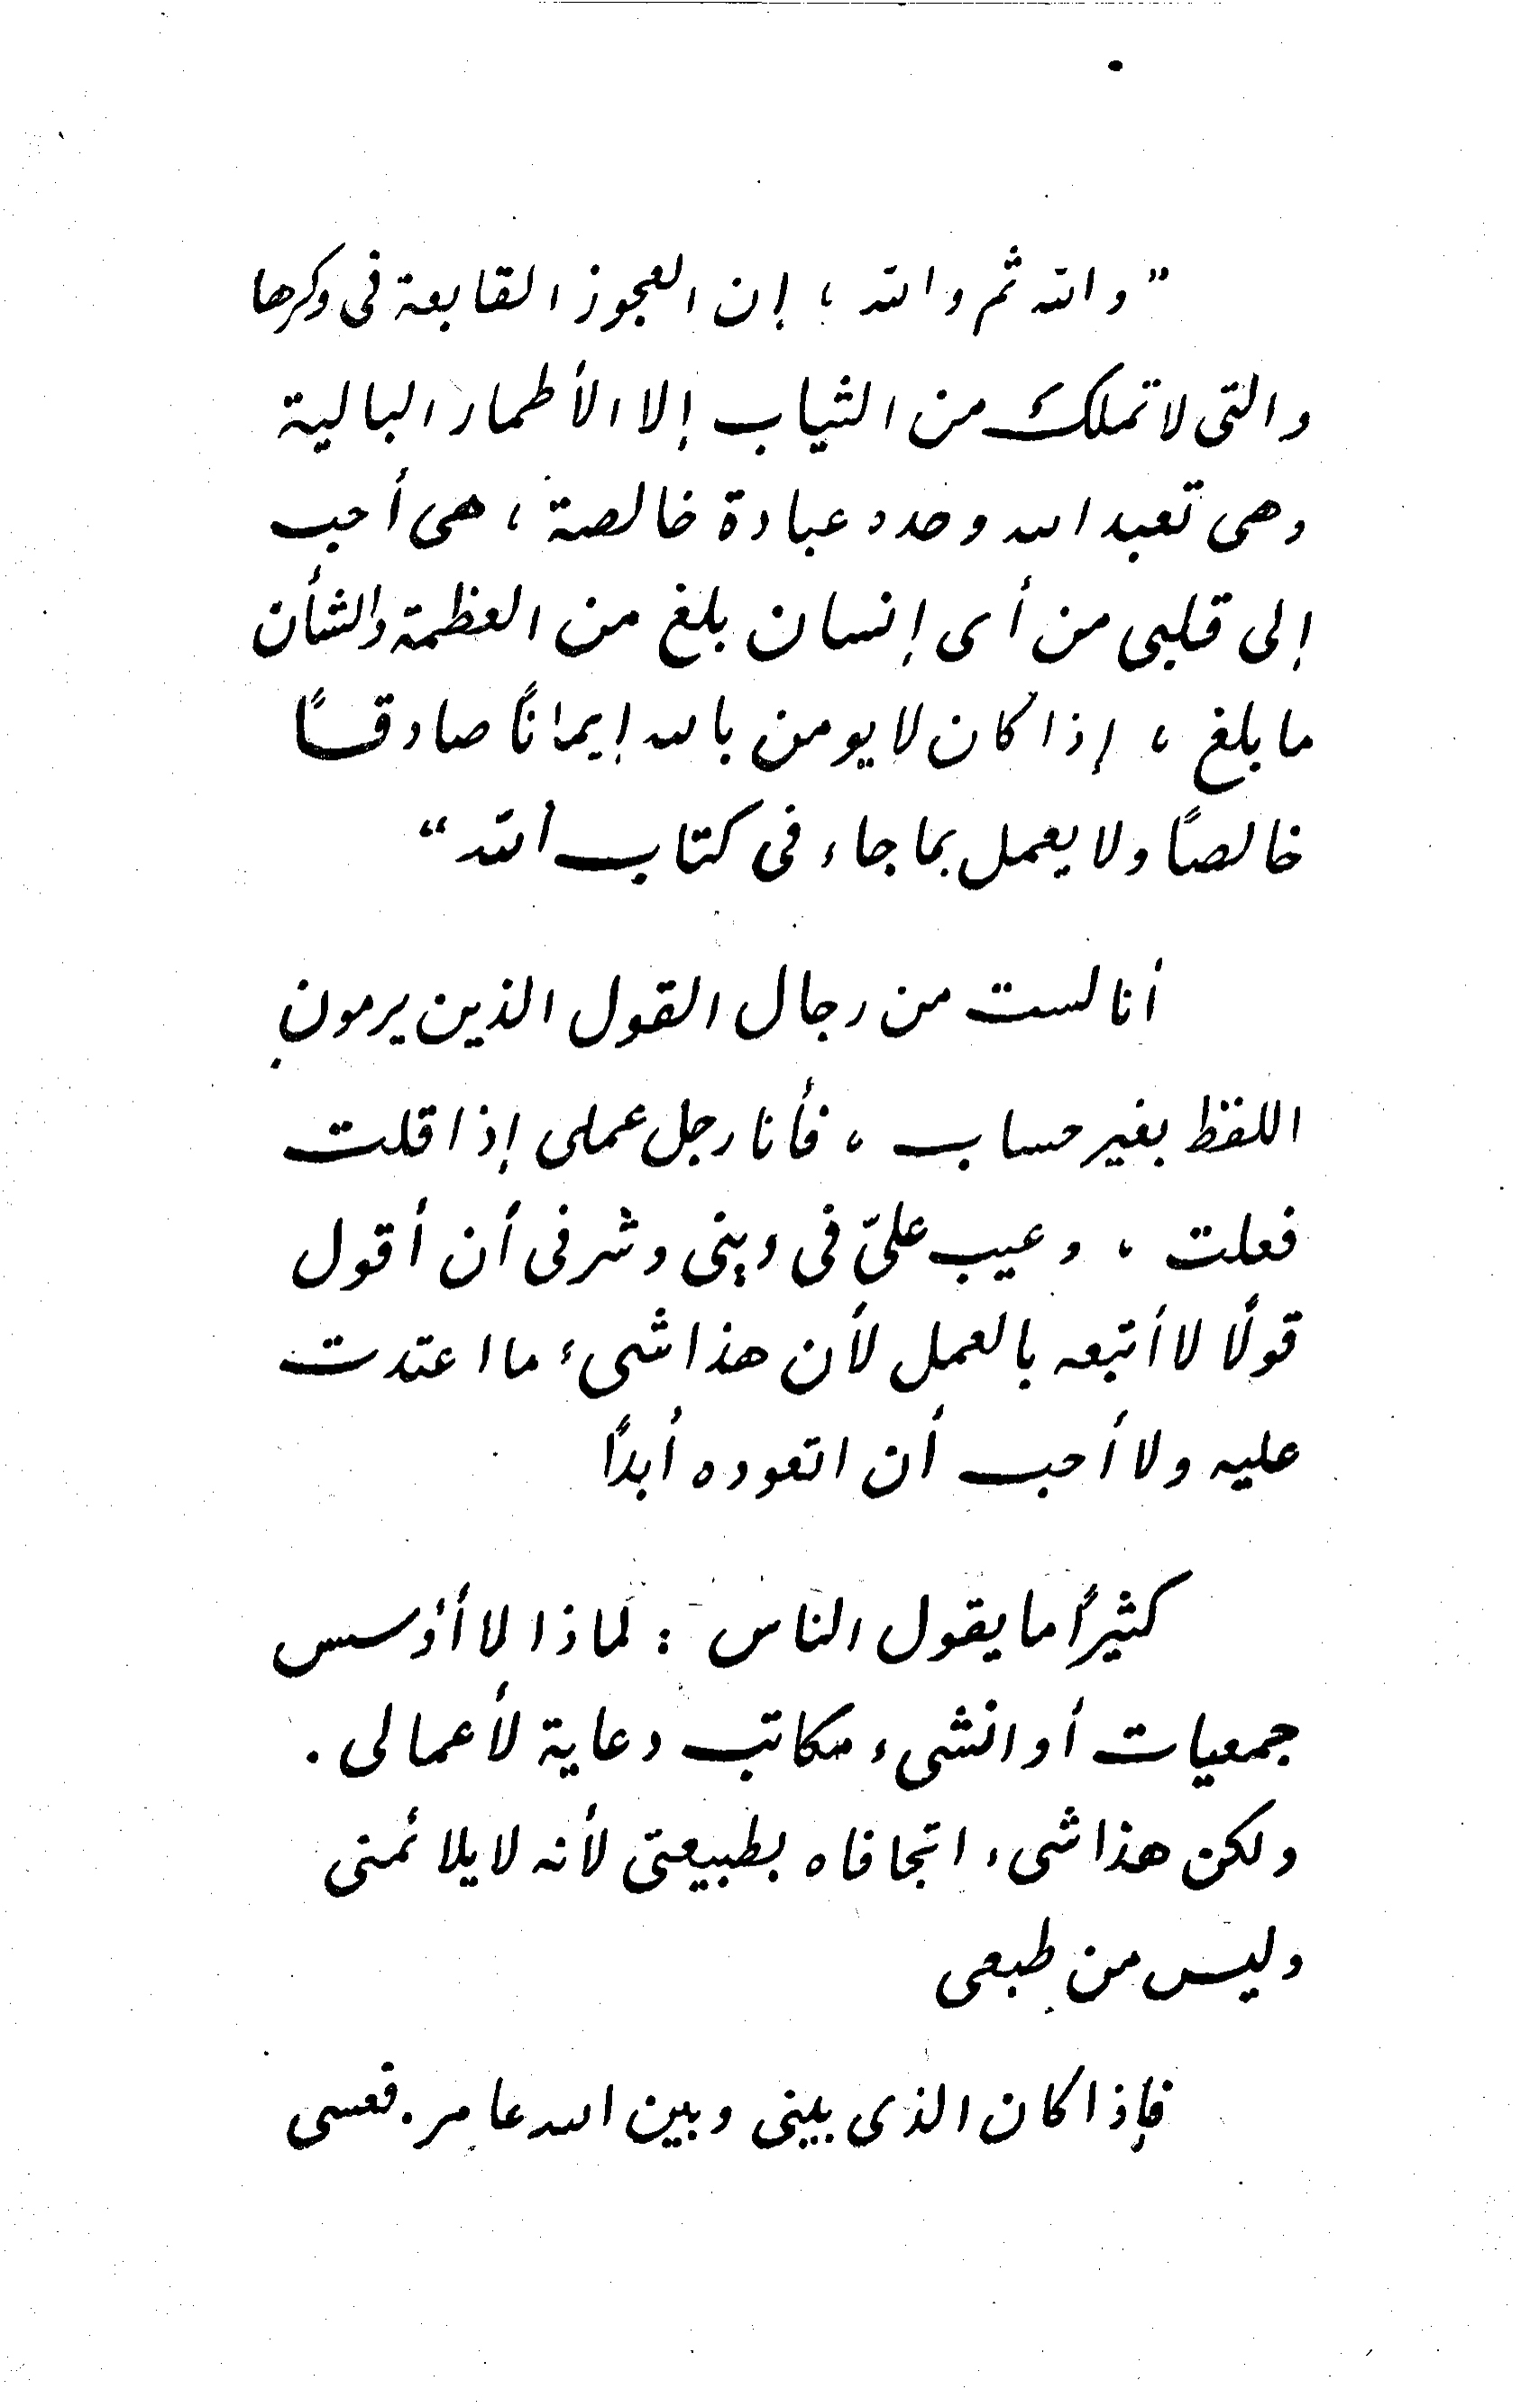 "والله ثم والله ، إن العجوز القابعة فى وكرها
والتى لا تملك من الثياب إلا الأطمار البالية
وهى تعبد الله وحده عبادة خالصة ، هى أحب
إلى قلبى من أى إنسان بلغ من العظمة والشأن
ما بلغ ، إذا كان لا يومن بالله إيمانًا صادقًا
خالصًا ولا يعمل بما جاء فى كتاب الله"
أنا لست من رجال القول الذين يرمون
اللفظ بغير حساب ، فأنا رجل عملى إذا قلت
فعلت ، وعيب علىّ فى دينى وشرفى أن أقول
قولًا لا أتبعه بالعمل لأن هذا شىء ما اعتدت
عليه ولا أحب أن اتعوده أبدًا
كثيرًا ما يقول الناس : لماذا لا أؤسس
جمعيات أو انشىء مكاتب دعاية لأعمالى .
ولكن هذا شىء اتجافاه بطبيعتى لأنه لا يلائمنى
وليس من طبعى
فإذا كان الذى بينى وبين الله عامر . فعسى